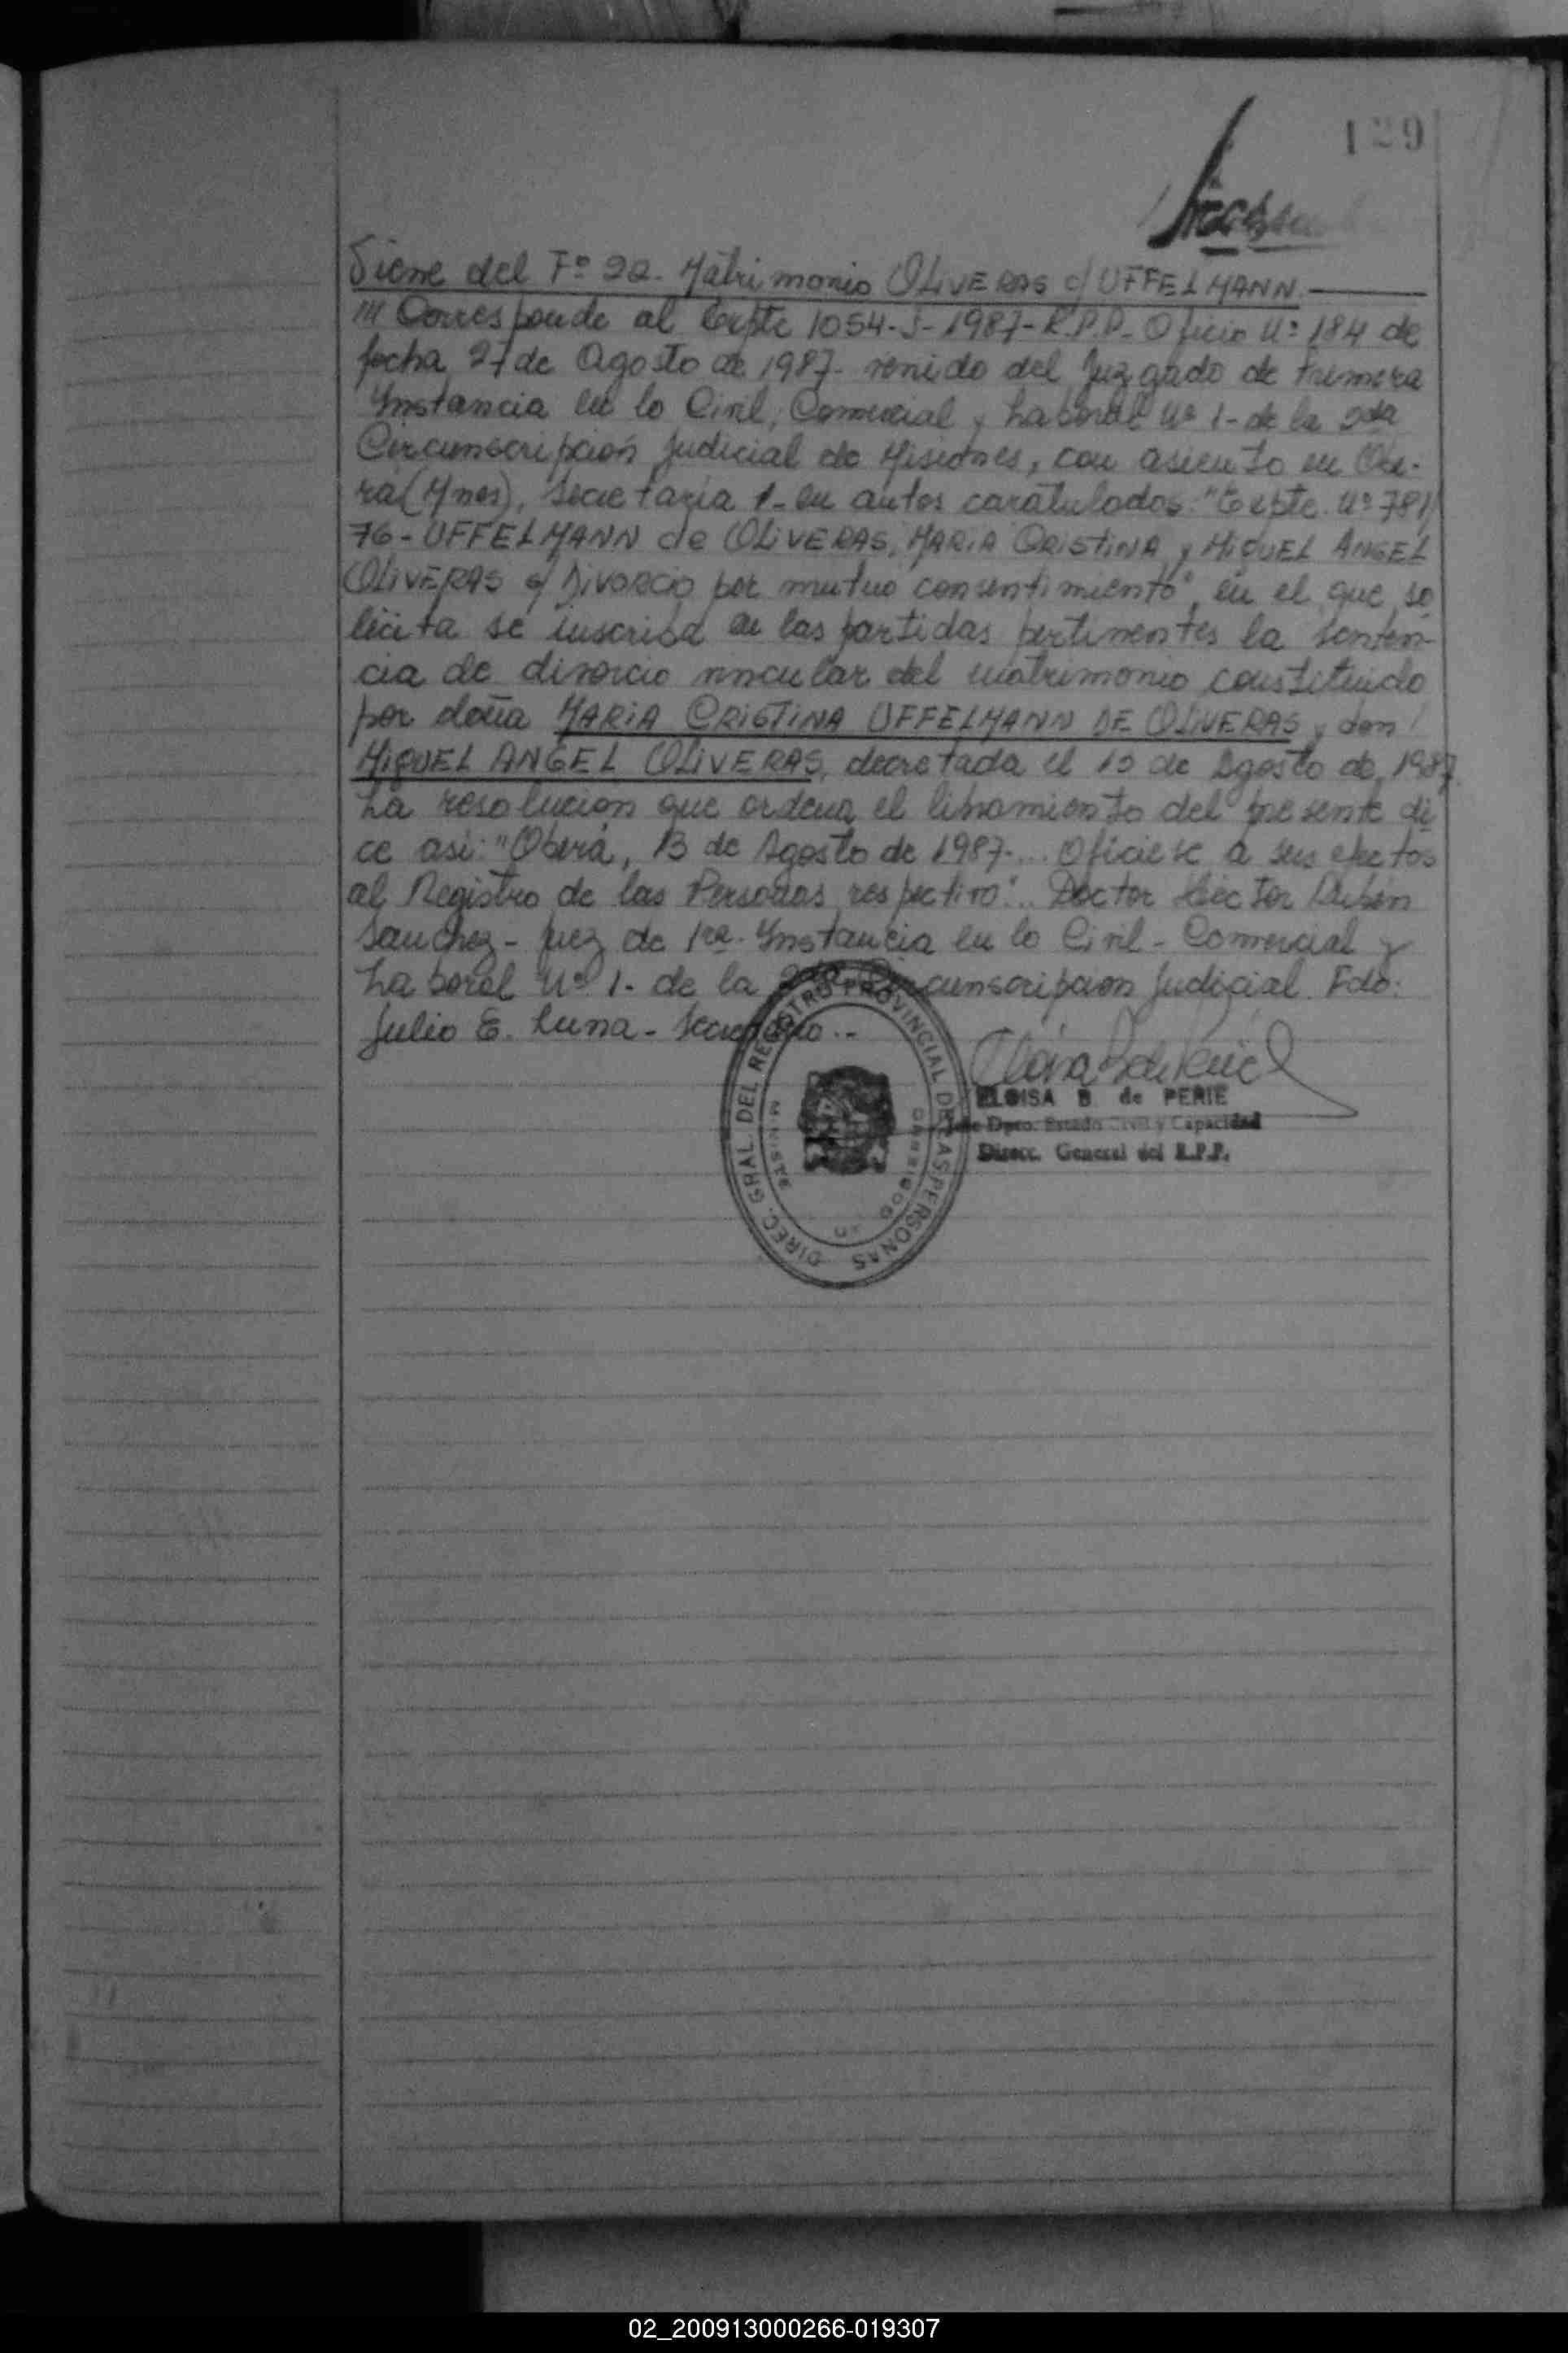 129
Viene del Fº 22. Matrimonio OLIVERAS c/ UFFELMANN.
/// Corresponde al Expte 1054-J-1987-R.P.P. Oficio Nº 184 de
fecha 27 de Agosto de 1987. venido del Juzgado de Primera
Instancia en lo Civil, Comercial y Laboral Nº 1- de la 2da
Circunscripción Judicial de Misiones, con asiento en Obe-
ra (Mnes), Secretaría 1- en autos caratulados: "Expte. Nº 781/
76- UFFELMANN de OLIVERAS, MARIA CRISTINA y MIGUEL ANGEL
OLIVERAS s/ Divorcio por mutuo consentimiento", en el que so
licita se inscriba en las partidas pertinentes la senten-
cia de divorcio vincular del matrimonio constituido
por doña MARIA CRISTINA UFFELMANN DE OLIVERAS y don
MIGUEL ANGEL OLIVERAS, decretada el de Agosto de 1987.
La resolución que ordena el libramiento del presente di
ce así: "Oberá, 13 de Agosto de 1987-... Ofíciese a sus efectos
al Registro de las Personas respectivo"... Doctor Héctor Rubén
Sanchez - Juez de 1ra. Instancia en lo Civil - Comercial y
Laboral Nº 1- de la 2da Circunscripción Judicial. Fdo:
Julio E. Luna - Secretario..
ELOISA B. de PERIE
Jefe Dpto. Estado Civil y Capacidad
Direcc. General del R.P.P.
DIREC. GRAL. DEL REGISTRO PROVINCIAL DE LAS PERSONAS
02_200913000266-019307